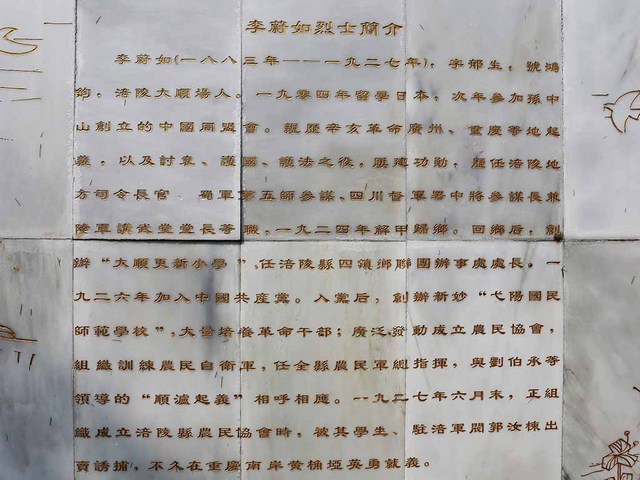 李蔚如烈士簡介
李蔚如(一八八三年——一九二七年)，字郁生，號鴻
鈞，涪陵大順場人。一九零四年留學日本，次年參加孫中
山創立的中國同盟會。親歷辛亥革命廣州、重慶等地起
義，以及討袁、護國、護法之役，屢建功勳，歷任涪陵地
方司令長官 蜀軍第五師參謀、四川督軍署中將參謀長兼
陸軍講武堂堂長等職，一九二四年解甲歸鄉。回鄉后，創
辦“大順更新小學”，任涪陵縣四鎮鄉聯團辦事處處長。一
九二六年加入中國共産黨。入黨后，創辦新妙“弋陽國民
師範學校”，大量培養革命干部；廣泛發動成立農民協會，
組織訓練農民自衛軍，任全縣農民軍總指揮，與劉伯承等
領導的“順瀘起義”相呼相應。一九二七年六月末，正組
織成立涪陵縣農民協會時，被其學生、駐涪軍閥郭汝棟出
賣誘捕，不久在重慶南岸黄桷埡英勇就義。